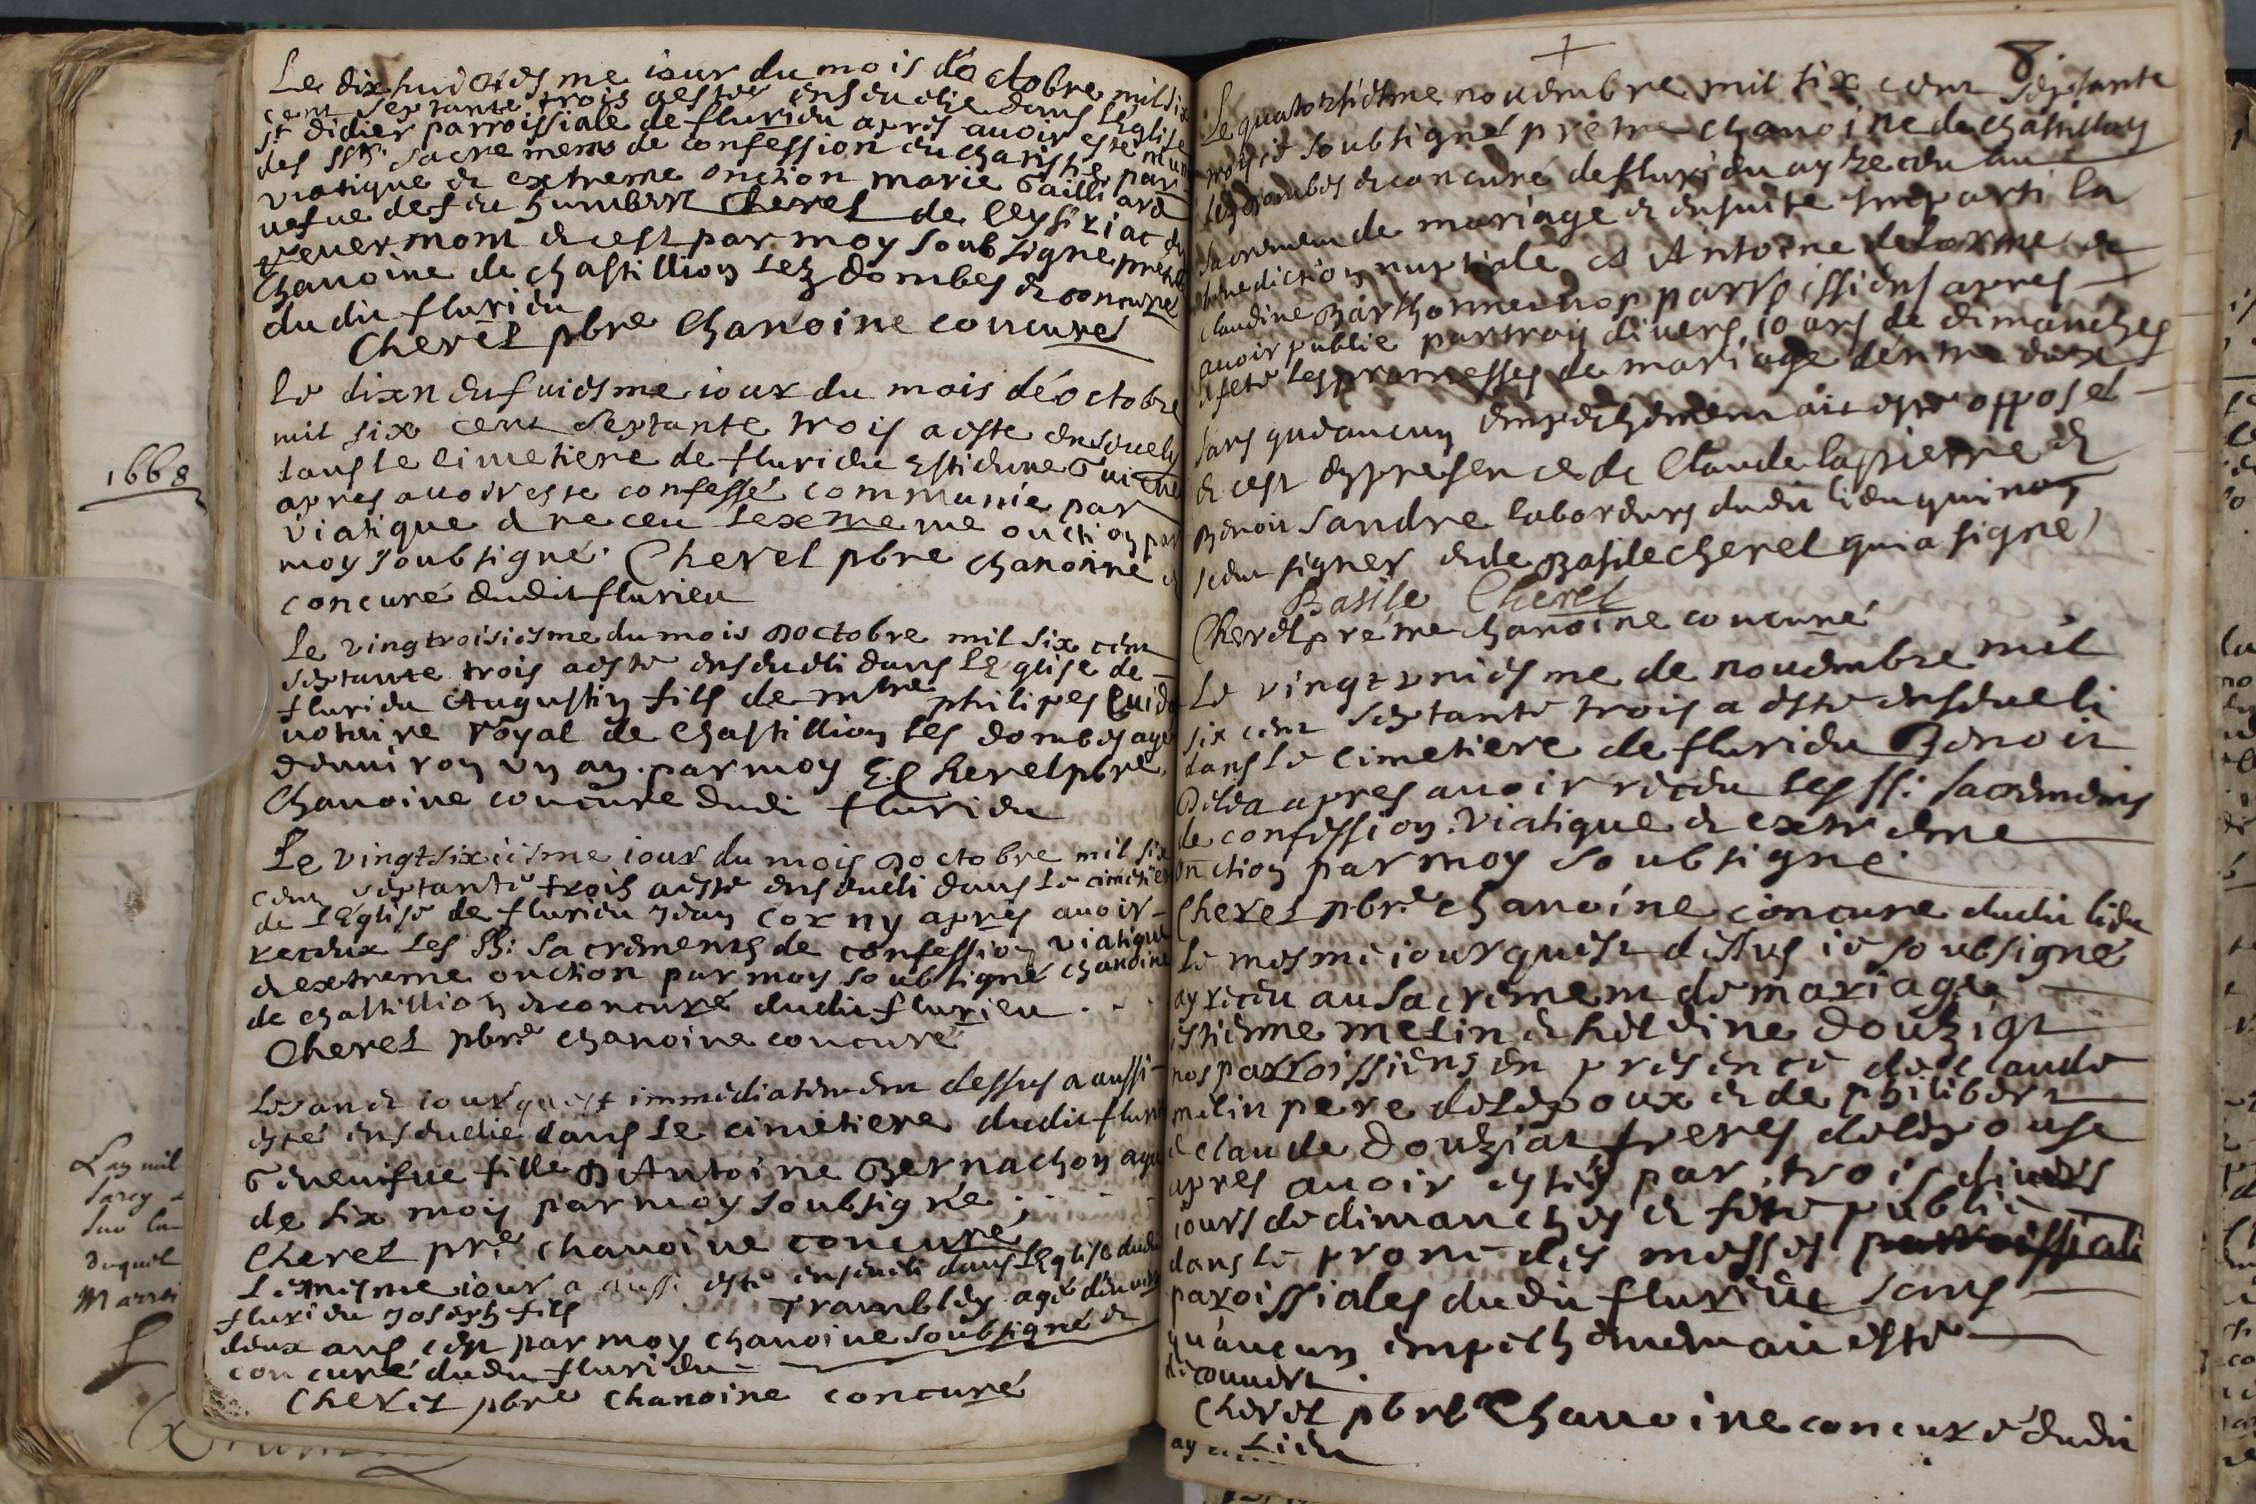 Le dixhuictiesme iour du mois d'octobre mil six
cent septante trois a esté enseuelie dans leglise
st didier parroissiale de flurieu aprés auoir esté mun
des sts sacremens de confession eucharistie par
viatique et extreme onction marie Gailliard
uefue de feu humbert Cheret de Ceysiriac du
reuermont et cest par moy soubsigne
Chanoine de chastillion lez dombes et concuré
dudit flurieu
Cheret pbre Chanoine concuré
Le dixneufuiesme iour du mois d'octobre
mil six cent septante trois a esté enseuely
dans le cimetiere de flurieu Estienne
apres auoir esté confessé communié par
viatique et receu lextreme onction par
moy soubsigné. Cheret pbre chanoine et
concuré dudit flurieu
Le vingtroisiesme du mois d'octobre mil six cent
septante trois a esté enseueli dans leglise de
flurieu Augustin fils de mtre philipes
notaire royal de chastillion les dombes agé
denuiron un an. par moy E. Cheret pbre
Chanoine concuré dudit flurieu
Le vingtsixiesme iour du mois d'octobre mil six
cent septante trois a esté enseueli dans le cimetiere
de leglise de flurieu Jean Corny aprés auoir
receux les sts sacrements de confession viatique
et extreme onction par moy soubsigné chanoine
de chastillion et concuré dudit flurieu
Cheret pbre chanoine concuré
Les an et iour quest immediatement dessus a aussi
esté enseuelie dans le cimetiere dudit flurieu
Geneuifue fille d'Antoine Bernachon agée
de six mois par moy soubsigné;
Cheret pre chanoine concuré
Le mesme iour a aussi esté enseueli dans leglise dudit
flurieu Joseph fils Trambley agé denuiron
deux ans par moy chanoine soubsigné et
concuré dudit flurieu
Cheret pbre chanoine concuré
1668
Lan mil
sur la
duquel
8
Le quatorsiesme nouembre mil six cent septante
trois ie soubsigné prétre chanoine de chastillon
les dombes et concuré de flurieu ay receu au
sacrement de mariage et ensuite imparti la
benediction nuptiale à Antoine delorme et
Claudine Barthonnet nos parroissiens apres
auoir publié par troy diuers iours de dimanches
et feste les promesses de mariage d'entre eux
sans qu'aucun empechement ait esté opposé
et cest en presence de Claude lapierre et
Benoit Sandre laboureurs dudit lieu qui n'ont
sceu signer et de Basile cheret qui a signé
Basile Cheret
Cheret prétre chanoine concuré
Le vingt uniesme de nouembre mil
six cent septante trois a esté enseueli
dans le cimetiere de flurieu Benoit
apres auoir receu les ss: sacremens
de confession, viatique et extreme
onction par moy soubsigné.
Cheret pbre chanoine concuré dudit lieu
Le mesme iour quest dessus ie soubsigné
ay receu au sacrement de mariage
estienne melin et douziat
nos parroissiens en presence de claude
melin pere de lespoux et de philibert
et claude douziat freres de lespouse
apres auoir estés par trois diuers
iours de dimanches et feste publié
dans le prone des messes parroissiale
paroissiales dudit flurieu sans
qu'aucun empechement ait esté
decouuert.
Cheret pbre Chanoine concuré dudit
lieu